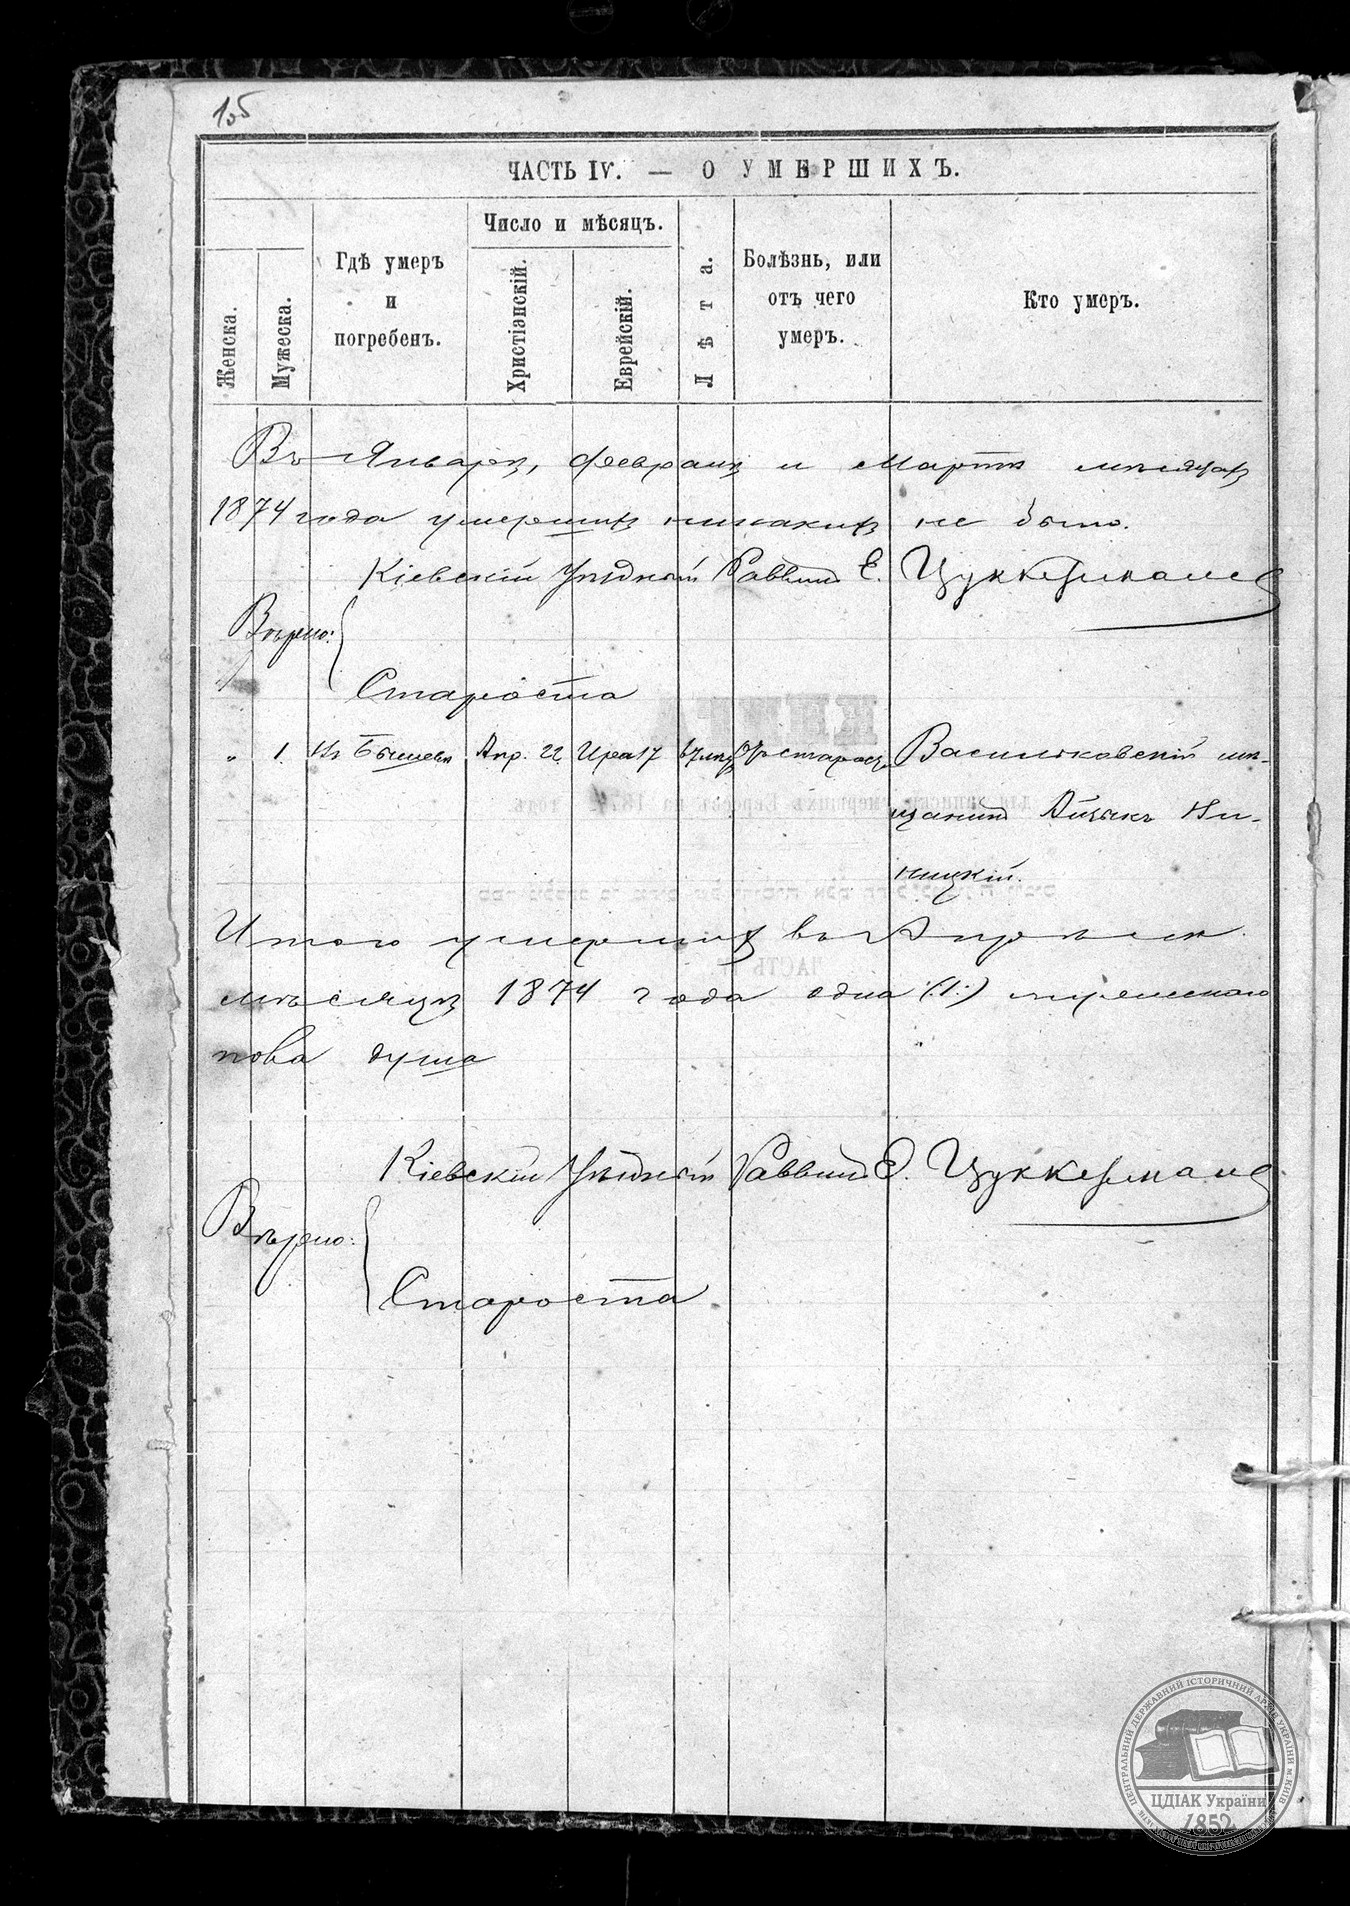 105
ЧАСТЬ IV. — О УМЕРШИХЪ.
Женска.
Мужеска.
Гдѣ умеръ
и
погребенъ.
Число и мѣсяцъ.
Христіанскій.
Еврейскій.
Лѣта.
Болѣзнь, или
отъ чего
умеръ.
Кто умеръ.
Въ Январѣ, Февралѣ и Мартѣ мѣсяцахъ
1874 года умершихъ никакихъ не было.
Кіевскій Уѣздный Раввинъ Е. Цуккерманъ
Вѣрно:
Староста
" 1. Въ Бышевѣ Апр. 22 Ира 17 67 лѣтъ Отъ старости Васильковскій мѣ-
щанинъ Айзикъ Ни-
ницкій.
Итого умершихъ въ Апрѣлѣ
мѣсяцѣ 1874 года одна (:1:) мужескаго
пола душа
Кіевскій Уѣздный Раввинъ Е. Цуккерманъ
Вѣрно:
Староста
ЦЕНТРАЛЬНИЙ ДЕРЖАВНИЙ ІСТОРИЧНИЙ АРХІВ УКРАЇНИ М.КИЇВ
ЦДІАК України
1852